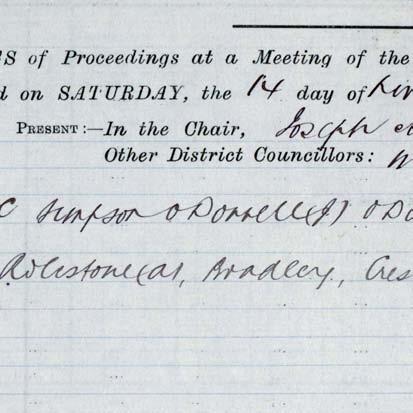 S of Proceedings at a Meeting of the
d on SATURDAY, the 14 day of
PRESENT:—In the Chair, Joseph
Other District Councillors:
C Simpson O'Donnell (J) O'Do
Rolestone (a), Bradley, Cres